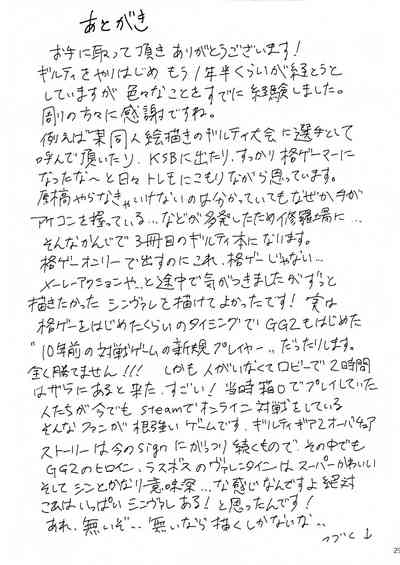 あとがき
お手に取って頂きありがとうございます！
ギルティをやりはじめ もう1年半くらいが経とうと
していますが 色々なことをすでに経験しました。
周りの方々に感謝ですね。
例えば某同人絵描きのギルティ大会に選手として
呼んで頂いたり、KSBに出たり、すっかり格ゲーマーに
なったな〜と日々トレモにこもりながら思っています。
原稿やらなきゃいけないのは分かっていてもなぜか手が
アケコンを握っている…などが多発したため修羅場に…
そんなかんじで3冊目のギルティ本になります。
格ゲーオンリーで出すのにこれ、格ゲーじゃない…
メーレーアクションや…と途中で気がつきましたがずっと
描きたかった シンヴァレを描けてよかったです！実は
格ゲーをはじめたくらいのタイミングでGG2もはじめた
"10年前の対戦ゲームの新規プレイヤー"だったりします。
全く勝てません!!! しかも人がいなくてロビーで2時間
はザらにあると来た、すごい！当時箱○でプレイしていた
人たちが今でもsteamでオンライン対戦をしている
そんなファンが根強いゲームです。ギルティギア2オーバチュア
ストーリーは今のsignにがっつり続くもので、その中でも
GG2のヒロイン、ラスボスのヴァレンタインはスーパーかわいい
そしてシンとかなり意味深…な感じなんですよ絶対
これはいっぱい シンヴァレ ある！と思ったんです！
あれ、無いぞ…無いなら描くしかないな…
つづく↓
29